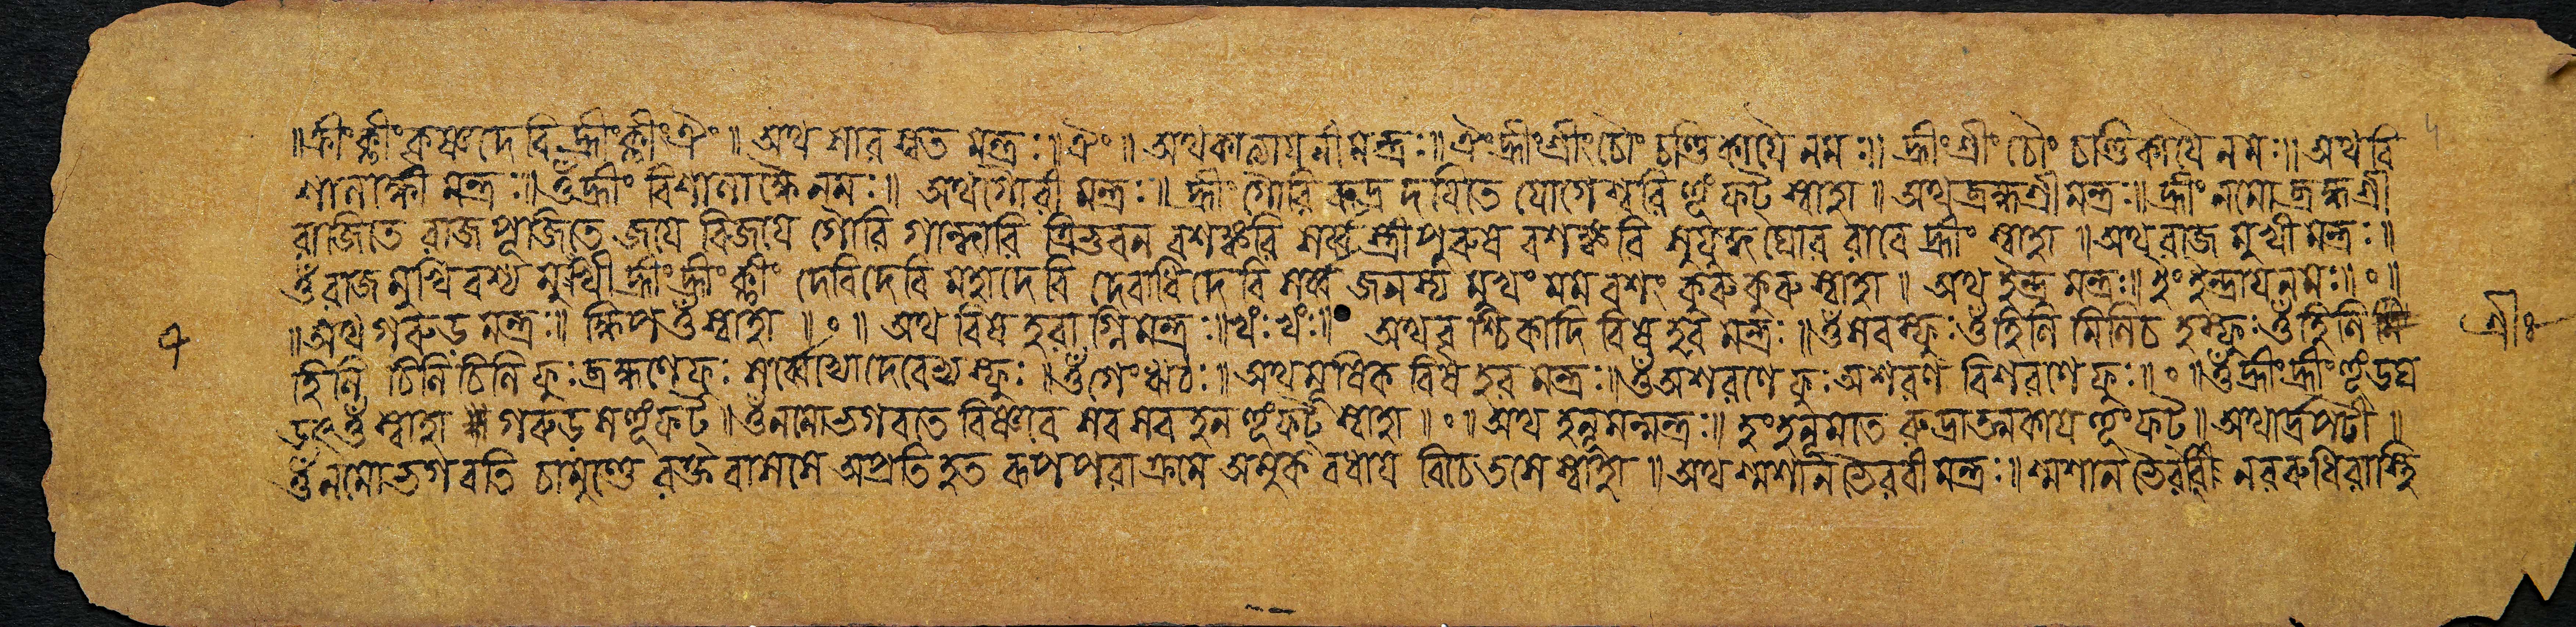 ॥ক্রীং ক্লীং কৃষ্ণদেবি হ্রীং ক্লীং ঐং॥ অথ শারস্বত মন্ত্রঃ॥ঐং॥ অথ কাত্যায়নী মন্ত্রঃ॥ ঐং হ্রীং শ্রীং চৌং চণ্ডিকায়ৈ নমঃ॥ হ্রীং শ্রীং চৌং চণ্ডিকায়ৈ নমঃ॥ অথ বি
শালাক্ষী মন্ত্রঃ॥ ওঁ হ্রীং বিশালাক্ষৈ নমঃ॥ অথ গৌরী মন্ত্রঃ॥ হ্রীং গৌরি রুদ্র দয়িতে যোগেশ্বরি হূঁ ফট্ স্বাহা॥ অথ ব্রহ্মশ্রী মন্ত্রঃ॥ হ্রীং নমো ব্রহ্মশ্রী
রাজিতে রাজ পূজিতে জয়ে বিজয়ে গৌরি গান্ধারি ত্রিভুবন বশঙ্করি সর্ব্ব স্ত্রী পুরুষ বশঙ্করি সুযুদ্ধ ঘোর রাবে হ্রীং স্বাহা॥ অথ রাজ মুখী মন্ত্রঃ॥
ওঁ রাজমুখি বশ্য মুখী হ্রীং হ্রীং ক্লীং দেবি দেবি মহাদেবি দেবাধিদেবি সর্ব্ব জনস্য মুখং মম বশং কুরু কুরু স্বাহা॥ অথ ইন্দ্র মন্ত্রঃ॥ ইং ইন্দ্রায় নমঃ॥ ॰॥
॥অথ গরুড় মন্ত্রঃ॥ ক্ষিপ ওঁ স্বাহা॥ ॰॥ অথ বিষ হরাগ্নি মন্ত্রঃ॥খং খং॥ অথ বৃশ্চিকাদি বিষ হর মন্ত্রঃ॥ ওঁ সরস্ফুঃ ওঁ হিলি মিলি চ হস্ফুঃ ওঁ হিলি
হিলি চিলি চিলি ফুঃ ব্রহ্মণে ফুঃ সর্ব্বেভ্যো দেবেভ্যস্ফুঃ॥ ওঁ গেং ঋঠঃ॥ অথ মূষিক বিষ হর মন্ত্রঃ॥ ওঁ অশরণে ফুঃ অশরণ বিশরণে ফুঃ॥ ॰॥ ওঁ হ্রীং হ্রীং হূঁ
ওঁ স্বাহা গরুড় স হূঁ ফট্॥ ওঁ নমো ভগবতে বিষ্ণবে সর সর হন হূঁ ফট্ স্বাহা॥ ॰॥ অথ হনূমন্মন্ত্রঃ॥ হং হনূমতে রুদ্রাত্মকায় হূঁ ফট্॥ অথার্দ্রপটী॥
ওঁ নমো ভগবতি চামুণ্ডে রক্ত বাসসে অপ্রতি হত রূপ পরাক্রমে অমুক বধায় বিচেতসে স্বাহা॥ অথ শ্মশান ভৈরবী মন্ত্রঃ॥ শ্মশান ভৈরবি নররুধিরাস্থি
শ্রীঃ